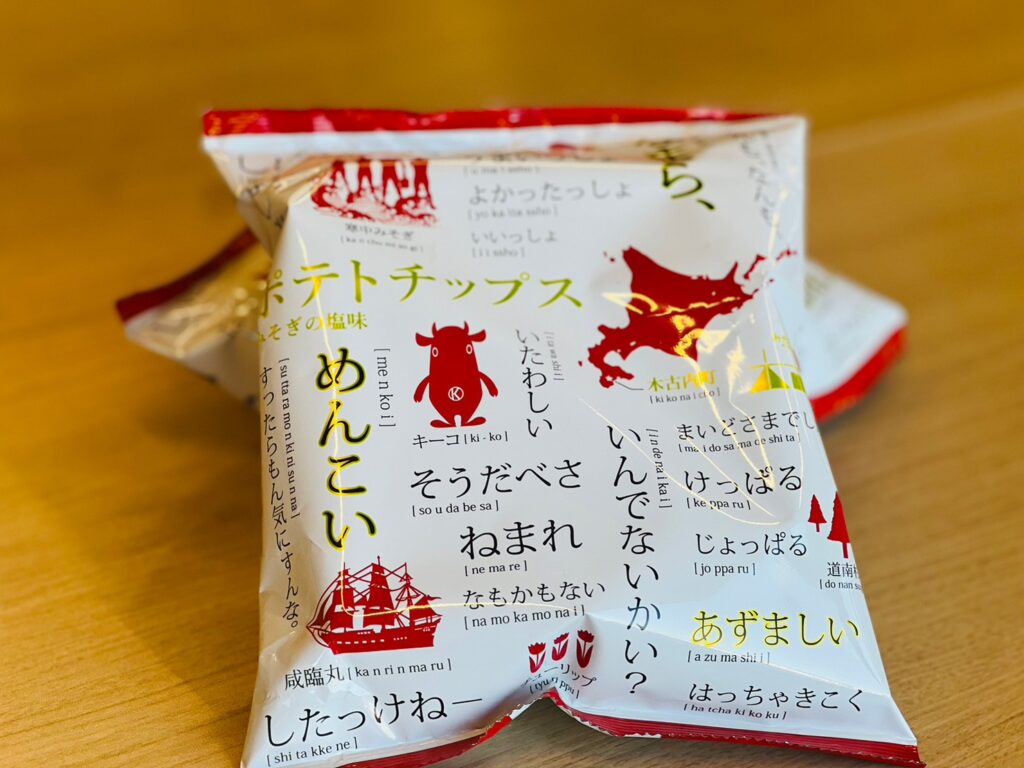 ち、
よかったっしょ
[yo ka tta ssho]
いいっしょ
[i i ssho]
寒中みそぎ
ポテトチップス
みそぎの塩味
めんこい
[me n ko i]
[su tta ra mo n ki ni su n na]
すったらもん気にすんな。
キーコ [ki - ko]
K
いたわしい
木古内町
[ki ko na i cho]
まいどさまでし
[ma i do sa ma de shi ta]
そうだべさ
[so u da be sa]
いんでないかい？
[i n de na i ka i]
けっぱる
[ke ppa ru]
ねまれ
[ne ma re]
じょっぱる
[jo ppa ru]
道南
[do nan su
なもかもない
[na mo ka mo na i]
あずましい
[a zu ma shi i]
咸臨丸 [ka n ri n ma ru]
チューリップ
[tyu ri ppu]
はっちゃきこく
[ha tcha ki ko ku]
したっけねー
[shi ta kke ne]